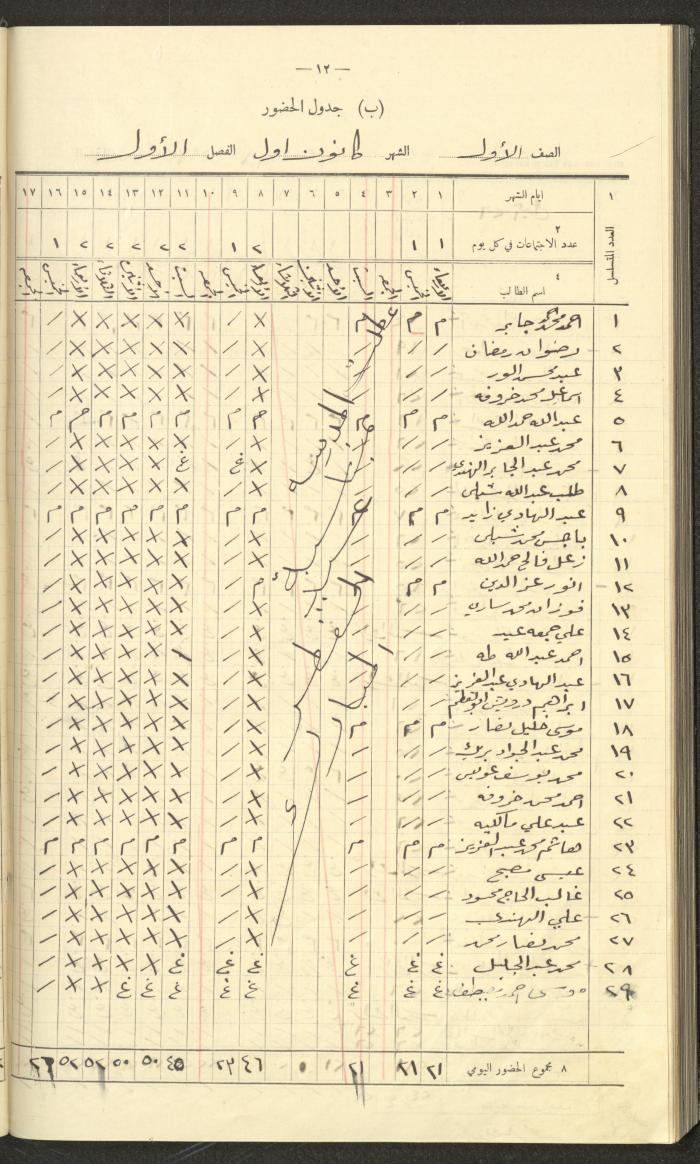 — ١٢ —
(ب) جدول الحضور
الصف الأول الشهر كانون اول الفصل الأول
١ ايام الشهر ١ ٢ ٣ ٤ ٥ ٦ ٧ ٨ ٩ ١٠ ١١ ١٢ ١٣ ١٤ ١٥ ١٦ ١٧
العدد المتسلسل
٢
عدد الاجتماعات في كل يوم ١ ١ ٢ ١ ٢ ٢ ٢ ٢ ٢ ١
٤
اسم الطالب الأربعاء الخميس الجمعة السبت الأحد الاثنين الثلاثاء الأربعاء الخميس الجمعة السبت الأحد الاثنين الثلاثاء الأربعاء الخميس الجمعة
١ احمد محمد جابر م م م × / × × × × × /
٢ رضوان رمضان / / / × / × × × × × /
٣ عبد محسن / / / × / × × × × × /
٤ اسماعيل محمد خروفه / / / × / × × × × × /
٥ عبدالله حمدالله م م م م م م م م م م م
٦ محمد عبد العزيز / / / × / × × × × × /
٧ محمد عبد الجابر الهندي / / / × غ غ × × × × /
٨ طلب عبدالله شبلي / / / × / × × × × × /
٩ عبد الهادي زايد م م م م م م م م م م م
١٠ باجس محمد شبلي / / / × / × × × × × /
١١ زعل فالح حمدالله / / / × / × × × × × /
١٢ انور عز الدين م م / م / × × × × × /
١٣ فوزان محمد ساري / / / × / × × × × × /
١٤ علي جمعه عيد / / / × / × × × × × /
١٥ احمد عبدالله طه / / / × / \ × × × × /
١٦ عبد الهادي عبد العزيز / / / × / × × × × × /
١٧ ابراهيم درويش / / / × / × × × × × /
١٨ موسى خليل نصار م م م × / × × × × × /
١٩ محمد عبد الجواد بريك / / / × / × × × × × /
٢٠ محمد يوسف عويس / / / × / × × × × × /
٢١ احمد محمد خروفه / / / × / × × × × × /
٢٢ عبد علي / / / × / × × × × × /
٢٣ هاشم محمد عبد العزيز م م م م م م م م م م م
٢٤ عيسى مصبح / / / × / × × × × × /
٢٥ غالب الحاج محمود / / / × / × × × × × /
٢٦ علي الهندي / / / × / × × × × × /
٢٧ محمد نصار محمد / / / × / × × × × × /
٢٨ محمد عبد الجليل غ غ غ غ غ غ × × × × /
٢٩ موسى احمد غ غ غ غ غ غ غ غ × × /
عطلة
المدرسة
٨ مجموع الحضور اليومي ٢١ ٢١ ٢١ ٤٦ ٢٣ ٤٥ ٥٠ ٥٠ ٥٢ ٥٢ ٢٦